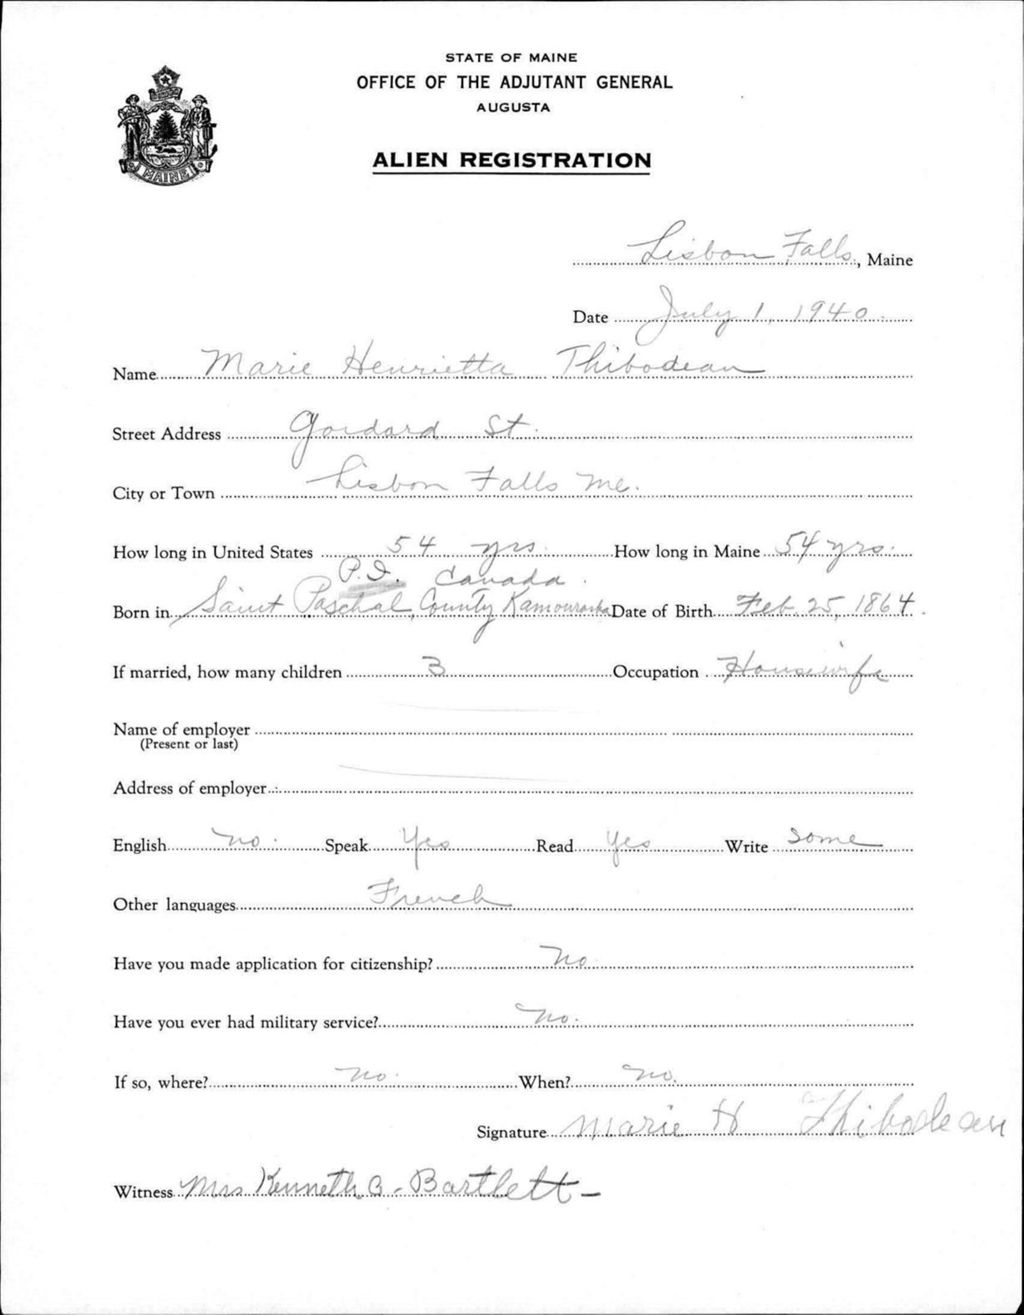 STATE OF MAINE
OFFICE OF THE ADJUTANT GENERAL
AUGUSTA
MAINE
ALIEN REGISTRATION
Lisbon Falls, Maine
Date July 1, 1940.
Name Marie Henrietta Thibodeau
Street Address Goddard St.
City or Town Lisbon Falls Me.
How long in United States 54 yrs. How long in Maine 54 yrs.
P.Q. Canada.
Born in Saint Paschal, County Kamouraska Date of Birth Feb. 25, 1864.
If married, how many children 3 Occupation Housewife
Name of employer
(Present or last)
Address of employer
English no. Speak Yes Read Yes Write Some
Other languages French
Have you made application for citizenship? No
Have you ever had military service? No.
If so, where? no. When? no.
Signature Marie H Thibodeau
Witness Mrs Kenneth B. Bartlett